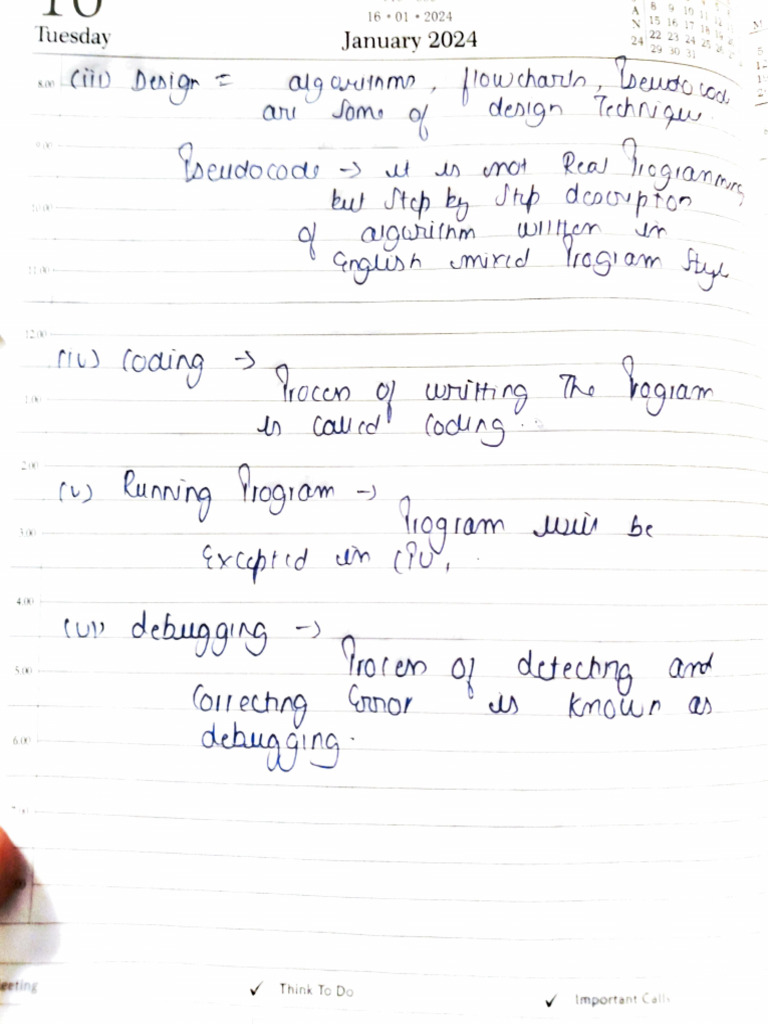 16 • 01 • 2024
Tuesday
January 2024
A 8 9 10 11
N 15 16 17 18
24 22 23 24 25 26
29 30 31
8.00 (iii) Design = algorithms, flowcharts, Pseudocod
are some of design Technique
9.00
Pseudocode → it is not Real Programming
but step by step description
10.00
of algorithm written in
English mixed Program style
11.00
12.00
(iv) Coding →
Process of writting The Program
1.00
is called coding.
2.00
(v) Running Program →
Program will be
3.00
Excepted in CPU,
4.00
(vi) debugging →
Process of detecting and
5.00
Correcting Error is known as
6.00
debugging.
eeting
✓ Think To Do
✓ Important Call